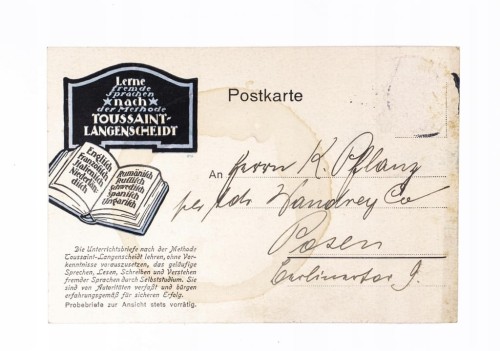 Lerne
fremde
Sprachen
nach
der Methode
TOUSSAINT-
LANGENSCHEIDT
Postkarte
Englisch
Französisch
Italienisch
Niederlän-
disch
Rumänisch
Russisch
Schwedisch
Spanisch
Ungarisch
An Herrn K. Pflanz
Wandrey Co
Posen
Berlinertor 9.
Die Unterrichtsbriefe nach der Methode
Toussaint-Langenscheidt lehren, ohne Vor-
kenntnisse vorauszusetzen, das geläufige
Sprechen, Lesen, Schreiben und Verstehen
fremder Sprachen durch Selbststudium. Sie
sind von Autoritäten verfaßt und bürgen
erfahrungsgemäß für sicheren Erfolg.
Probebriefe zur Ansicht stets vorrätig.